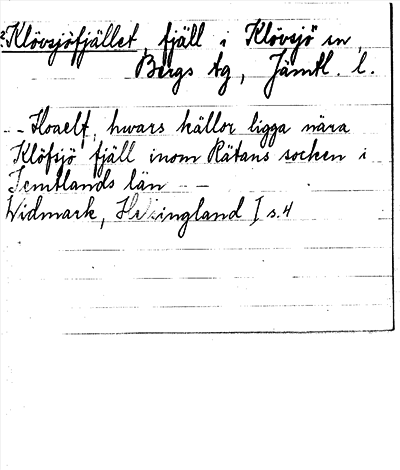 Klövsjöfjället, fjäll i Klövsjö sn,
Bergs tg, Jämtl. l.
-- Hoaelf, hvars källor ligga nära
Klöfsjö fjäll inom Rätans socken i
Jemtlands län --
Widmark, Helsingland I s. 4